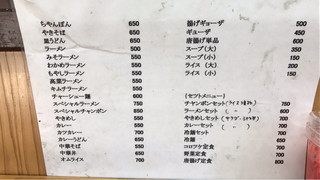 ちゃんぽん 650
やきそば 650
皿うどん 650
ラーメン 500
みそラーメン 550
わかめラーメン 550
もやしラーメン 550
高菜ラーメン 550
キムチラーメン 550
チャーシュー麺 600
スペシャルラーメン 700
スペシャルチャンポン 850
やきめし 550
カレー 550
カツカレー 700
カレーうどん 650
中華そば 550
中華丼 650
オムライス 700
揚げギョーザ 500
ギョーザ 450
唐揚げ単品 600
スープ(大) 350
スープ(小) 150
ライス(大) 200
ライス(小) 150
(セットメニュー)
チャンポンセット 750
ラーメンセット( 〃 ) 600
やきめしセット 700
カレーセット( 〃 ) 700
冷麺セット 700
冷麺 600
コロッケ定食 700
野菜定食 700
唐揚げ定食 800